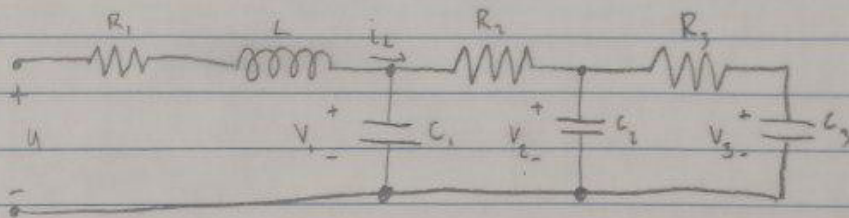 R₁ L i_L R₂ R₃
+
u
-
+
V₁
-
C₁
+
V₂
-
C₂
+
V₃
-
C₃